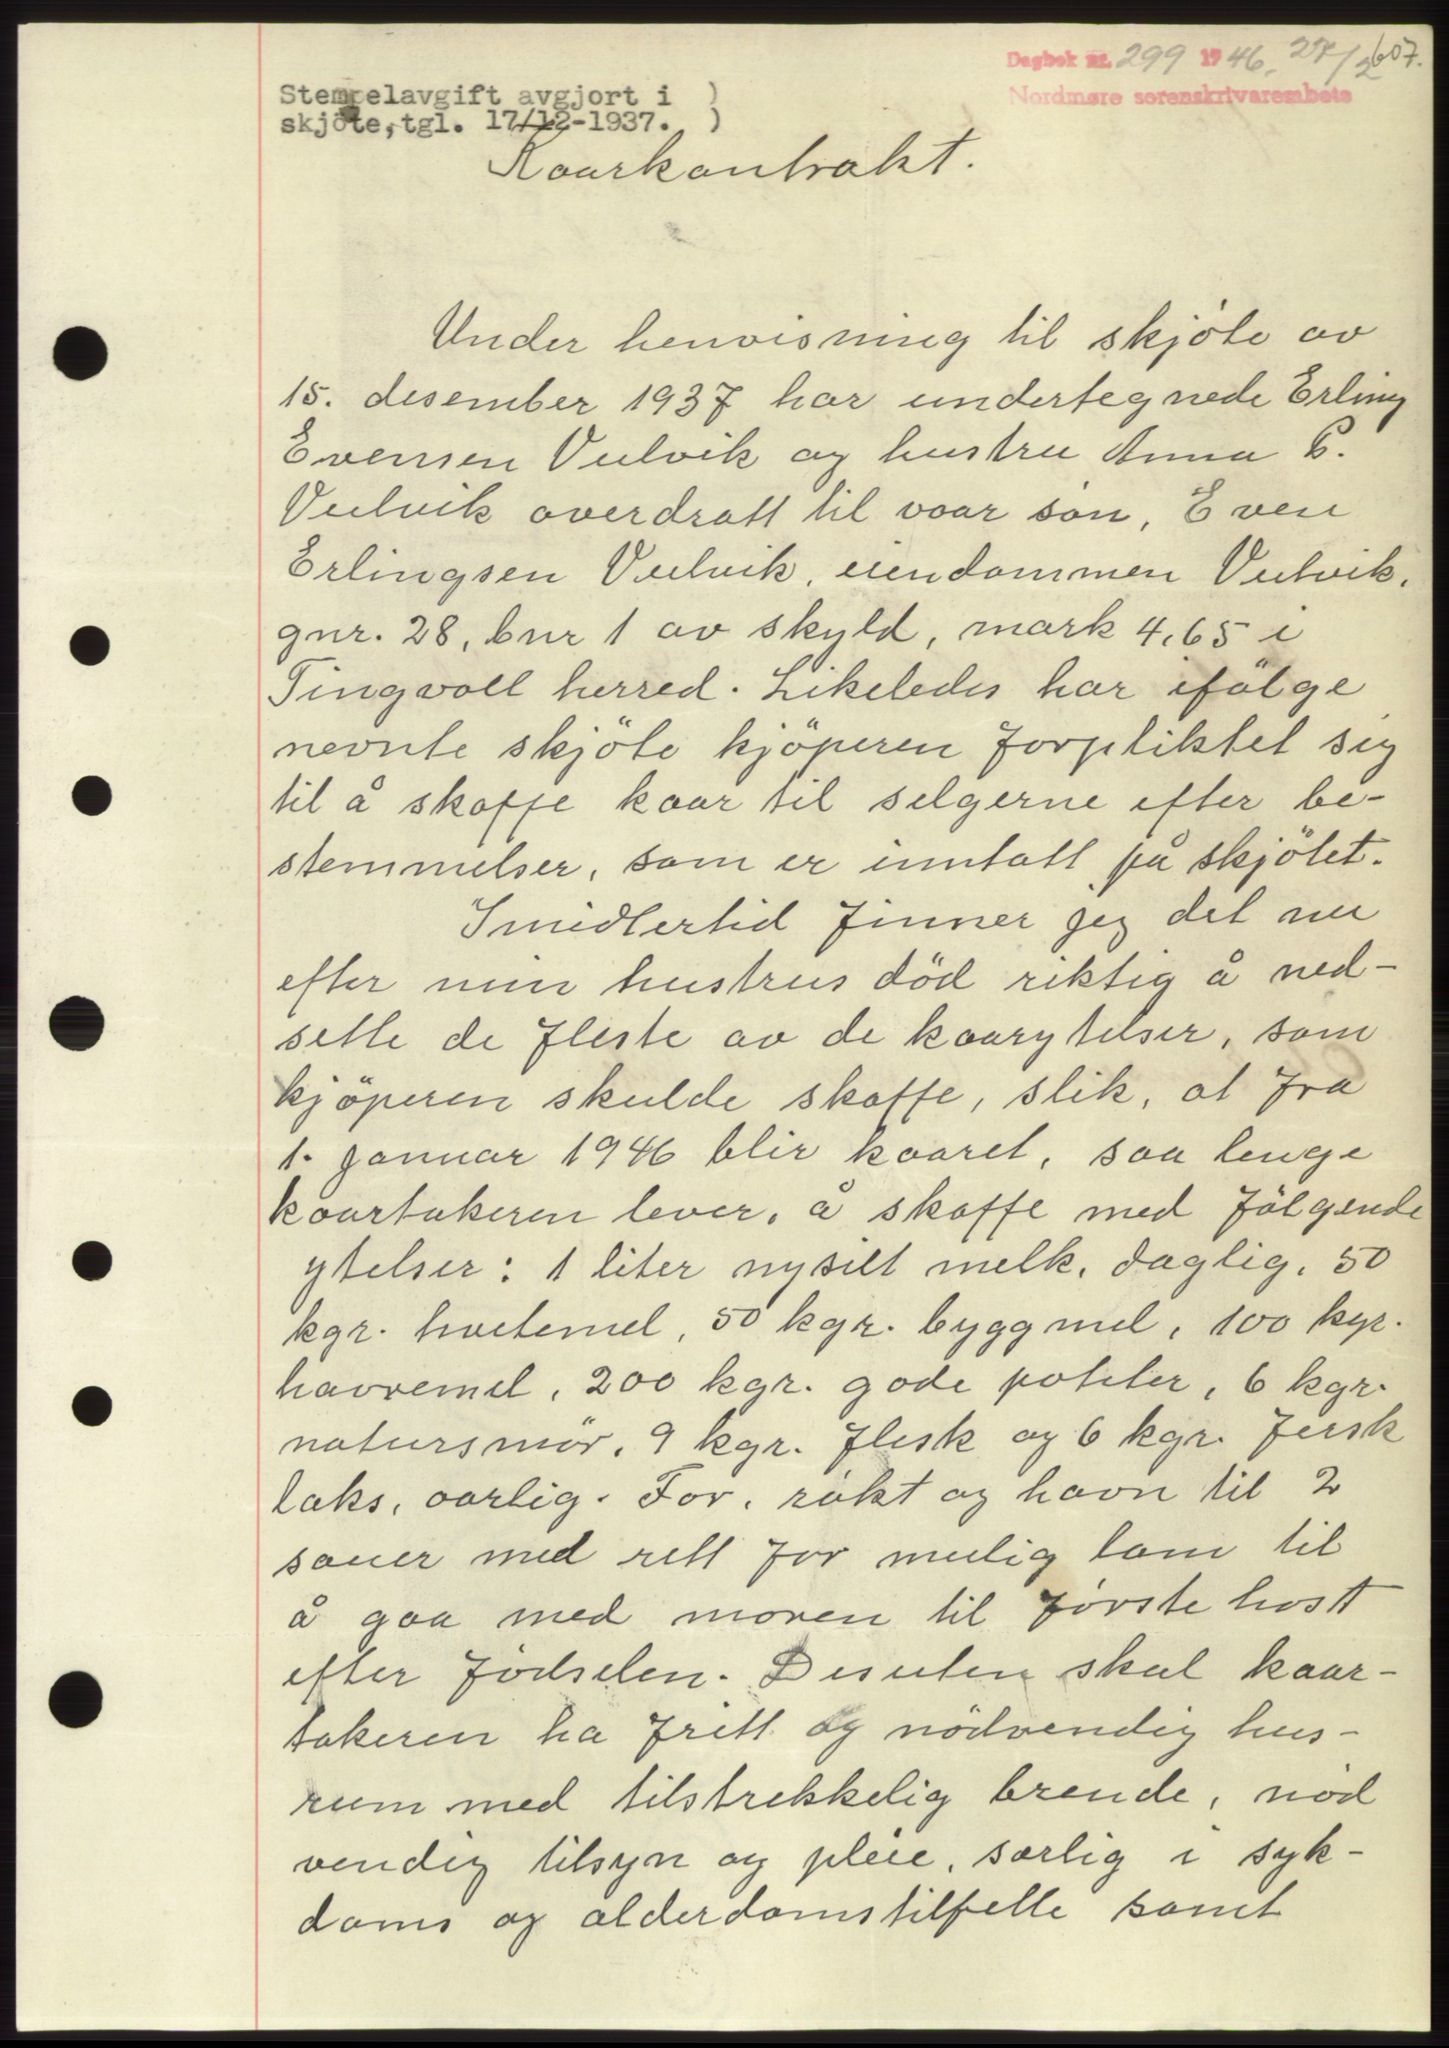 607.
Dagbok nr. 299 1946. 27/2
Nordmøre sorenskrivarembete
Stempelavgift avgjort i )
skjöte, tgl. 17/12-1937. )
Kaarkontrakt.
Under henvisning til skjöte av
15. desember 1937 har undertegnede Erling
Evensen Vulvik og hustru Anna P.
Vulvik overdratt til vaar sön, Even
Erlingsen Vulvik, eiendommen Vulvik,
gnr. 28, bnr 1 av skyld, mark 4,65 i
Tingvoll herred. Likeledes har ifölge
nevnte skjöte kjöperen forpliktet sig
til å skaffe kaar til selgerne efter be-
stemmelser, som er inntatt på skjötet.
Imidlertid finner jeg det nu
efter min hustrus död riktig å ned-
sette de fleste av de kaarytelser, som
kjöperen skulde skaffe, slik, at fra
1. januar 1946 blir kaaret, saa lenge
kaartakeren lever, å skaffe med fölgende
ytelser: 1 liter nysilt melk, daglig, 50
kgr. hvetemel, 50 kgr. byggmel, 100 kgr.
havremel, 200 kgr. gode poteter, 6 kgr.
natursmör, 9 kgr. flesk og 6 kgr. fersk
laks, aarlig. For, rökt og havn til 2
sauer med rett for mulig lam til
å gaa med moren til förste höst
efter födselen. Desuten skal kaar-
takeren ha fritt og nödvendig hus-
rum med tilstrekkelig brende, nöd
vendig tilsyn og pleie, særlig i syk-
doms og alderdomstilfelle samt